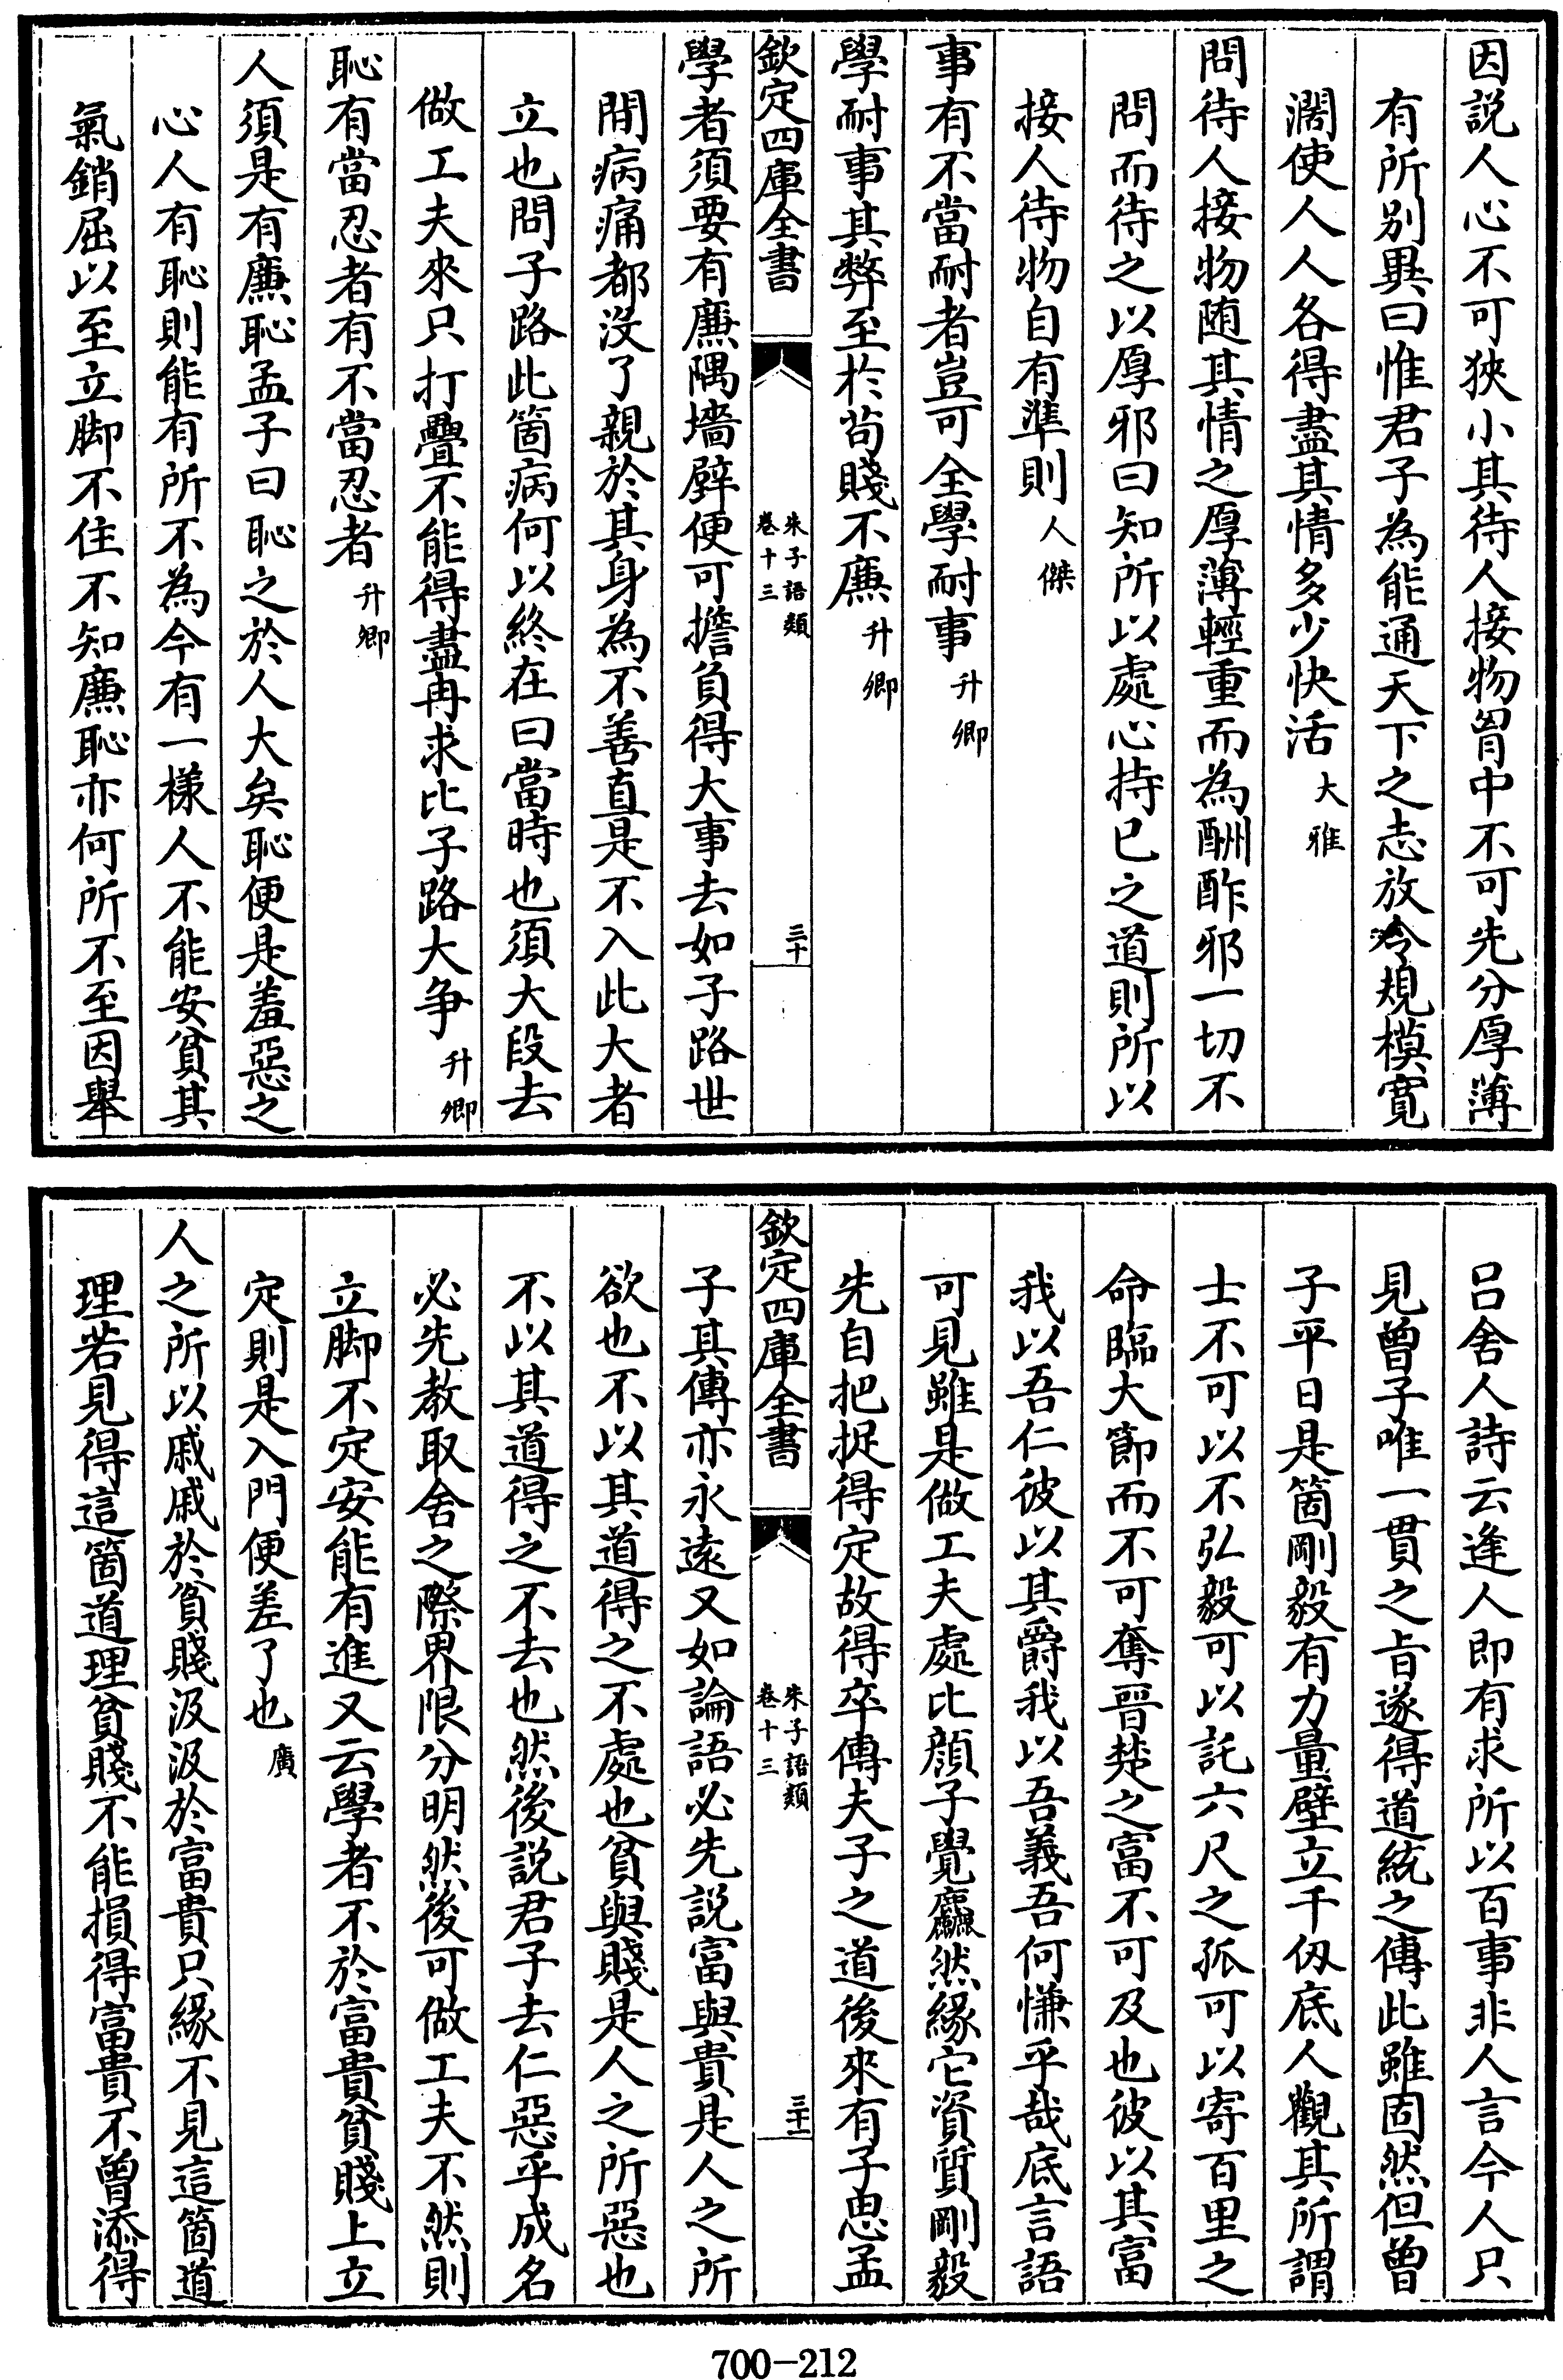 因説人心不可狹小其待人接物胷中不可先分厚薄
有所别異曰惟君子為能通天下之志放令規模寛
濶使人人各得盡其情多少快活大雅
問待人接物随其情之厚薄輕重而為酬酢邪一切不
問而待之以厚邪曰知所以處心持已之道則所以
接人待物自有準則人傑
事有不當耐者豈可全學耐事升卿
學耐事其弊至於苟賤不㢘升卿
欽定四庫全書
朱子語類
卷十三
三十
學者須要有㢘隅墻壁便可擔負得大事去如子路世
間病痛都没了親於其身為不善直是不入此大者
立也問子路此箇病何以終在曰當時也須大段去
做工夫來只打疊不能得盡冉求比子路大争升卿
恥有當忍者有不當忍者升卿
人須是有㢘恥孟子曰恥之於人大矣恥便是羞惡之
心人有恥則能有所不為今有一様人不能安貧其
氣銷屈以至立脚不住不知㢘恥亦何所不至因舉
呂舍人詩云逢人即有求所以百事非人言今人只
見曾子唯一貫之㫖遂得道統之傳此雖固然但曾
子平日是箇剛毅有力量壁立千仭底人觀其所謂
士不可以不弘毅可以託六尺之孤可以寄百里之
命臨大節而不可奪晉楚之富不可及也彼以其富
我以吾仁彼以其爵我以吾義吾何慊乎哉底言語
可見雖是做工夫處比顔子覺麤然緣它資質剛毅
先自把捉得定故得卒傳夫子之道後來有子思孟
欽定四庫全書
朱子語類
卷十三
三十一
子其傳亦永遠又如論語必先説富與貴是人之所
欲也不以其道得之不處也貧與賤是人之所惡也
不以其道得之不去也然後説君子去仁惡乎成名
必先教取舍之際界限分明然後可做工夫不然則
立脚不定安能有進又云學者不於富貴貧賤上立
定則是入門便差了也廣
人之所以戚戚於貧賤汲汲於富貴只緣不見這箇道
理若見得這箇道理貧賤不能損得富貴不曾添得
700-212